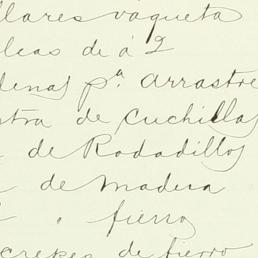 llares vaqueta
leas de á 2
denas pª. arrastre
stra de Cuchillas
de Rodadillos
de madera
" fierro
de fierro